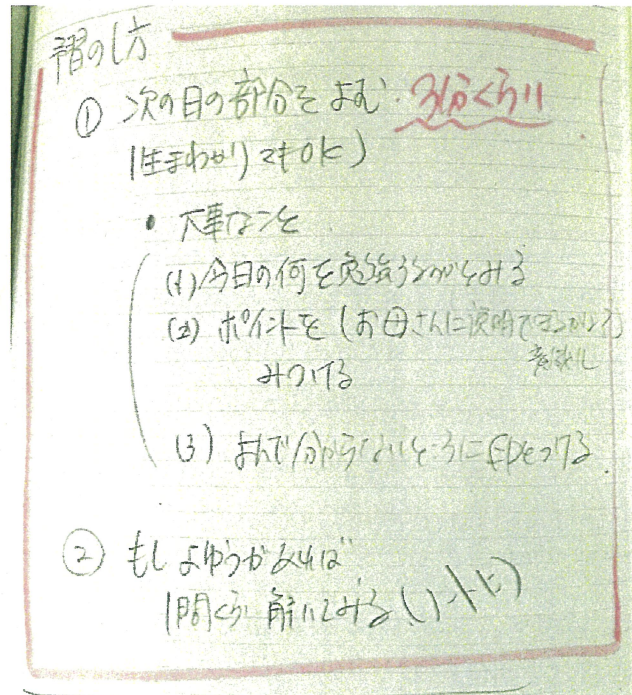 習のし方
① 次の日の部分をよむ. 3分くらい
(生まわかりでもOK)
・大事なこと
(1) 今日の何を勉強するかをみる
(2) ポイントを(お母さんに説明できるかな?)
意識し
みつける
(3) よんで分からないところに印をつける.
② もしよゆうがあれば
1問くらい解いてみる(ノートに)